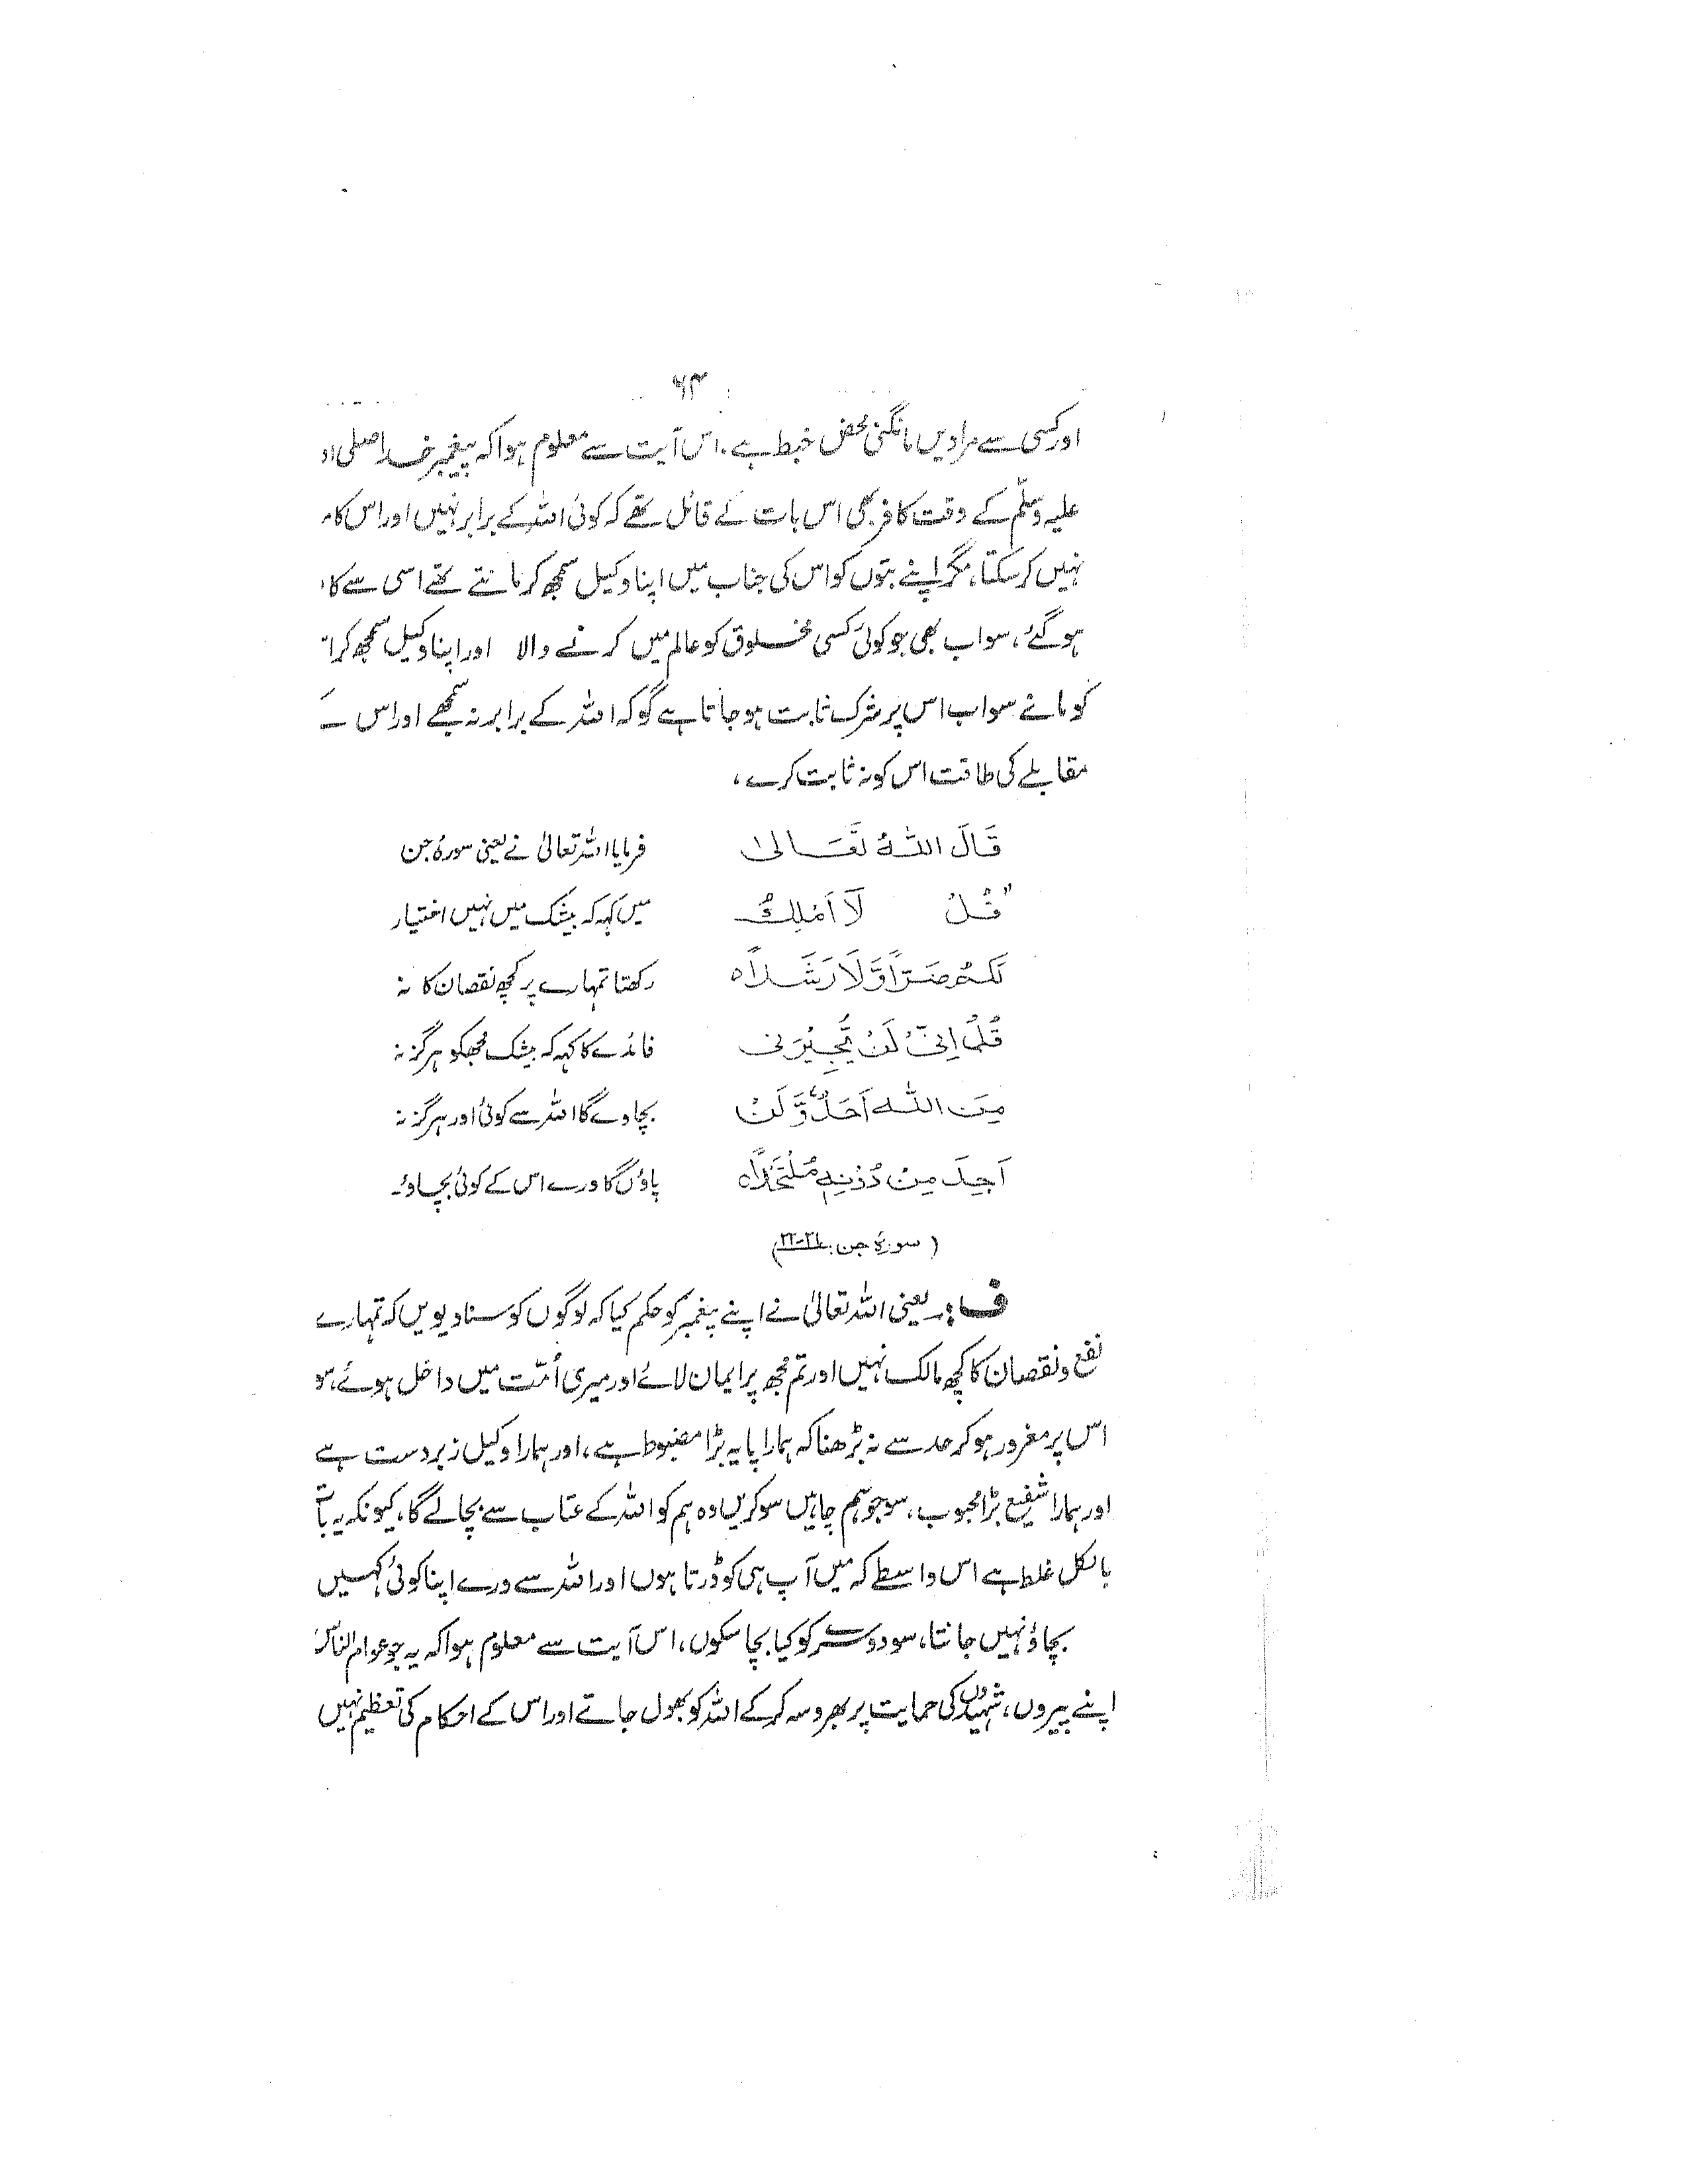 ۶۳
اور کسی سے مرادیں مانگنی محض خبط ہے. اس آیت سے معلوم ہوا کہ پیغمبر خدا صلی ا
علیہ وسلّم کے وقت کافر بھی اس بات کے قائل تھے کہ کوئی اللہ کے برابر نہیں اور اس کا م
نہیں کر سکتا، مگر اپنے بتوں کو اس کی جناب میں اپنا وکیل سمجھ کر مانتے تھے اسی سے کا
ہو گئے، سو اب بھی جو کوئی کسی مخلوق کو عالم میں کرنے والا اور اپنا وکیل سمجھ کر ا
کو مانے سو اب اس پر شرک ثابت ہو جاتا ہے گو کہ اللہ کے برابر نہ سمجھے اور اس کے
مقابلے کی طاقت اس کو نہ ثابت کرے،
قَالَ اللّٰهُ تَعَالٰى فرمایا اللہ تعالیٰ نے یعنی سورۂ جن
"قُلْ لَآ اَمْلِكُ میں کہہ کہ بیشک میں نہیں اختیار
لَكُمْ ضَرًّا وَّلَا رَشَدًاہ رکھتا تمہارے پر کچھ نقصان کا نہ
قُلْ اِنِّىْ لَنْ يُّجِيْرَنِى فائدے کا کہہ کہ بیشک مجھکو ہرگز نہ
مِنَ اللّٰهِ اَحَدٌ وَّلَنْ بچاوے گا اللہ سے کوئی اور ہرگز نہ
اَجِدَ مِنْ دُوْنِهٖ مُلْتَحَدًاہ پاؤں گا ورے اس کے کوئی بچاؤ۔
(سورۂ جن: ۲۱-۲۲)
ف: یعنی اللہ تعالیٰ نے اپنے پیغمبر کو حکم کیا کہ لوگوں کو سنا دیویں کہ تمہارے
نفع و نقصان کا کچھ مالک نہیں اور تم مجھ پر ایمان لائے اور میری اُمّت میں داخل ہوئے، سو
اس پر مغرور ہو کر حد سے نہ بڑھنا کہ ہمارا پایہ بڑا مضبوط ہے، اور ہمارا وکیل زبردست ہے
اور ہمارا شفیع بڑا محبوب، سو جو ہم چاہیں سو کریں وہ ہم کو اللہ کے عتاب سے بچا لے گا، کیونکہ یہ بات
بالکل غلط ہے اس واسطے کہ میں آپ ہی کو ڈرتا ہوں اور اللہ سے ورے اپنا کوئی کہیں
بچاؤ نہیں جانتا، سو دوسرے کو کیا بچا سکوں، اس آیت سے معلوم ہوا کہ یہ جو عوام الناس
اپنے پیروں، شہیدوں کی حمایت پر بھروسہ کر کے اللہ کو بھول جاتے اور اس کے احکام کی تعظیم نہیں